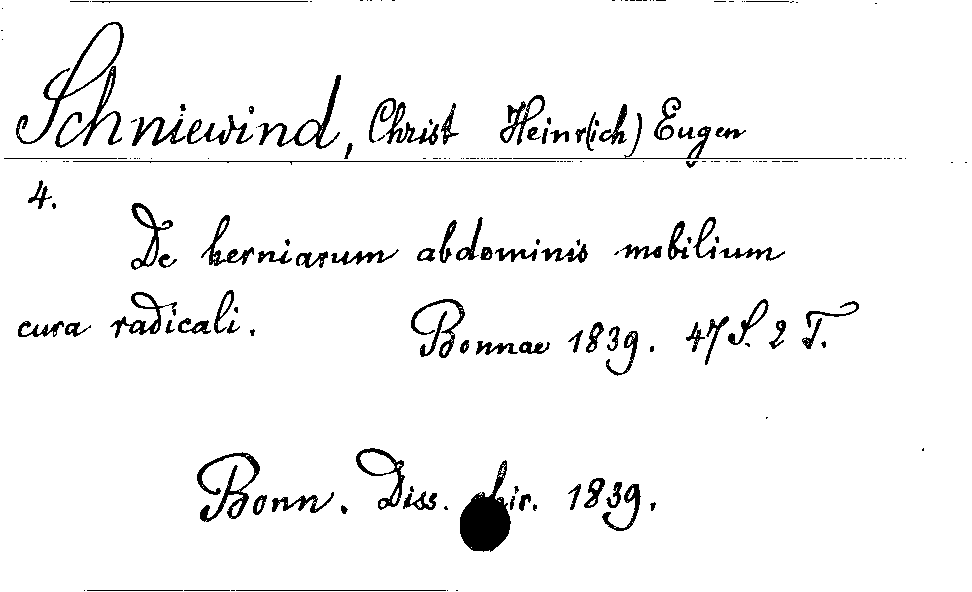 Schniewind, Christ Heinr(ich) Eugen
4.
De herniarum abdominis mobilium
cura radicali. Bonnae 1839. 47 S. 2 T.
Bonn. Diss. chir. 1839.